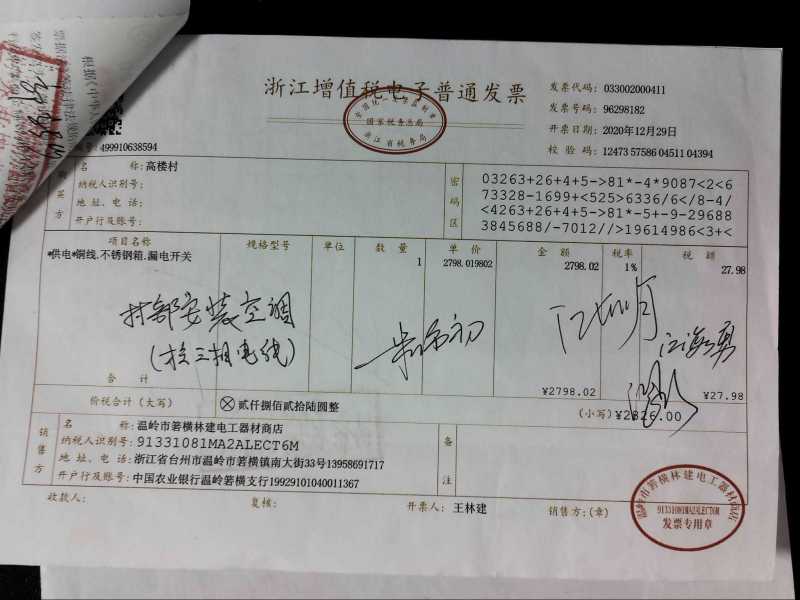 浙江增值税电子普通发票
全国统一发票监制章
国家税务总局
浙江省税务局
发票代码: 033002000411
发票号码: 96298182
开票日期: 2020年12月29日
校验码: 12473 57586 04511 04394
499910638594
名称: 高楼村
纳税人识别号:
地址、电话:
开户行及账号:
购买方
密码区
03263+26+4+5->81*-4*9087<2<6
73328-1699+<525>6336/6</8-4/
<4263+26+4+5->81*-5+-9-29688
3845688/-7012//>19614986<3+<
项目名称 规格型号 单位 数量 单价 金额 税率 税额
*供电*铜线.不锈钢箱.漏电开关 1 2798.019802 2798.02 1% 27.98
村部安装空调
(接三相电线)
江海勇
合计 ¥2798.02 ¥27.98
价税合计(大写) ⊗贰仟捌佰贰拾陆圆整 (小写)¥2826.00
销售方
名称: 温岭市箬横林建电工器材商店
纳税人识别号: 91331081MA2ALECT6M
地址、电话: 浙江省台州市温岭市箬横镇南大街33号13958691717
开户行及账号: 中国农业银行温岭箬横支行19929101040011367
备注
收款人: 复核: 开票人: 王林建 销售方:(章)
温岭市箬横林建电工器材商店
91331081MA2ALECT6M
发票专用章